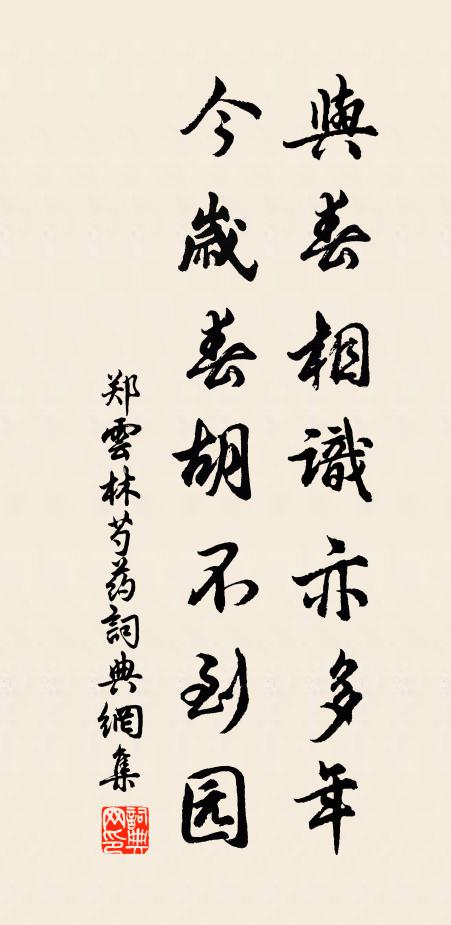 與春相識亦多年
今歲春胡不到园
郑雲林芍药詞典網集
詞典网印